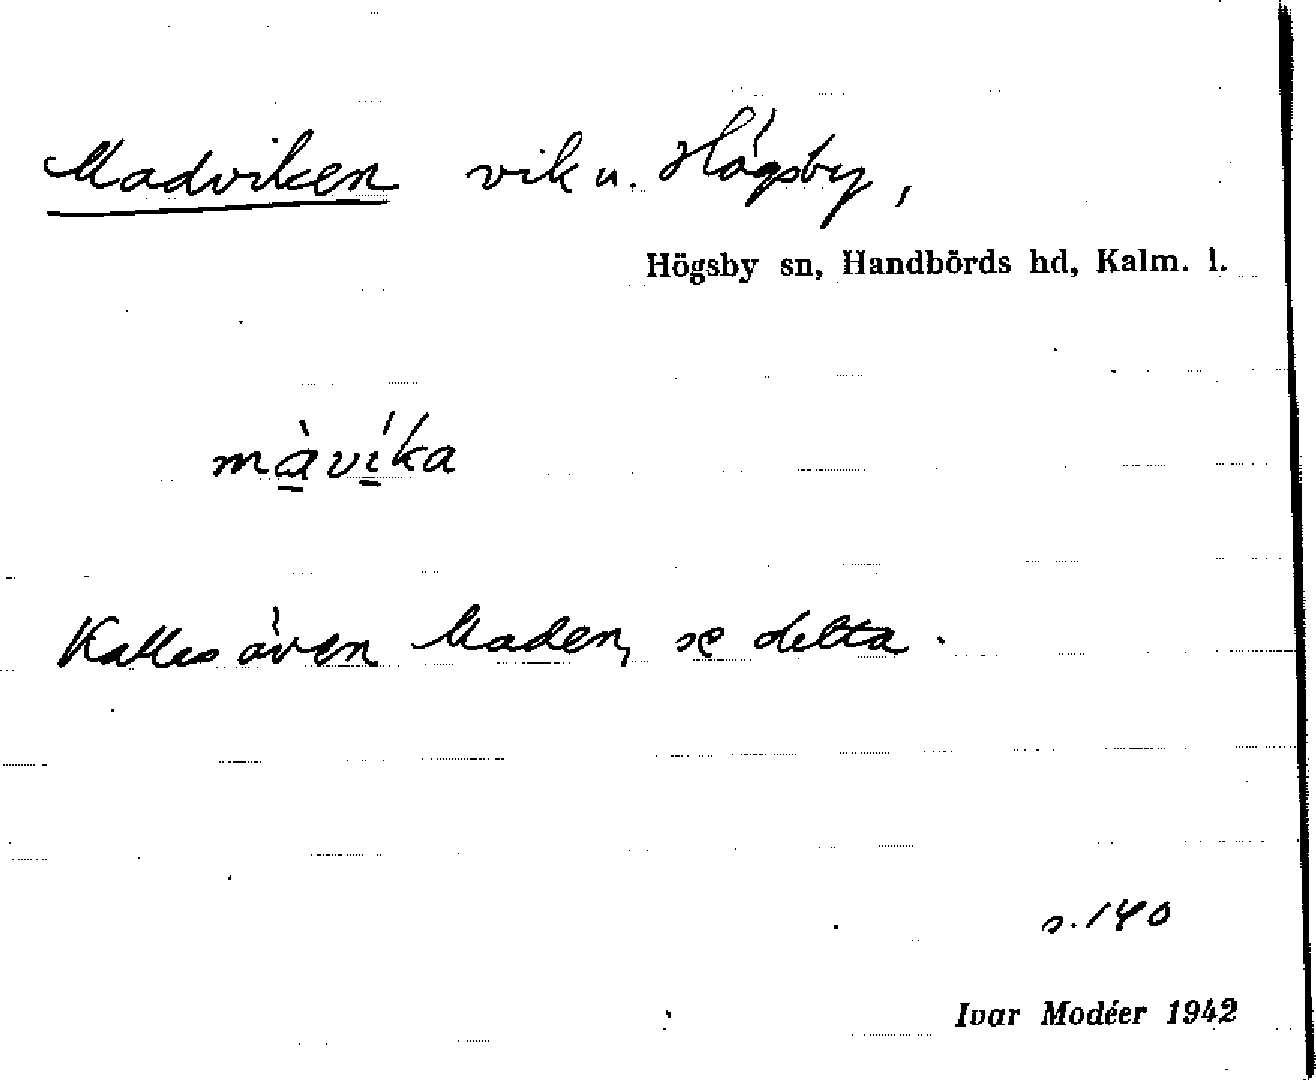 Madviken vik u. Högsby,
Högsby sn, Handbörds hd, Kalm. l.
mà̲ví̲ka
Kallas även Maden, se detta.
s. 140
Ivar Modéer 1942